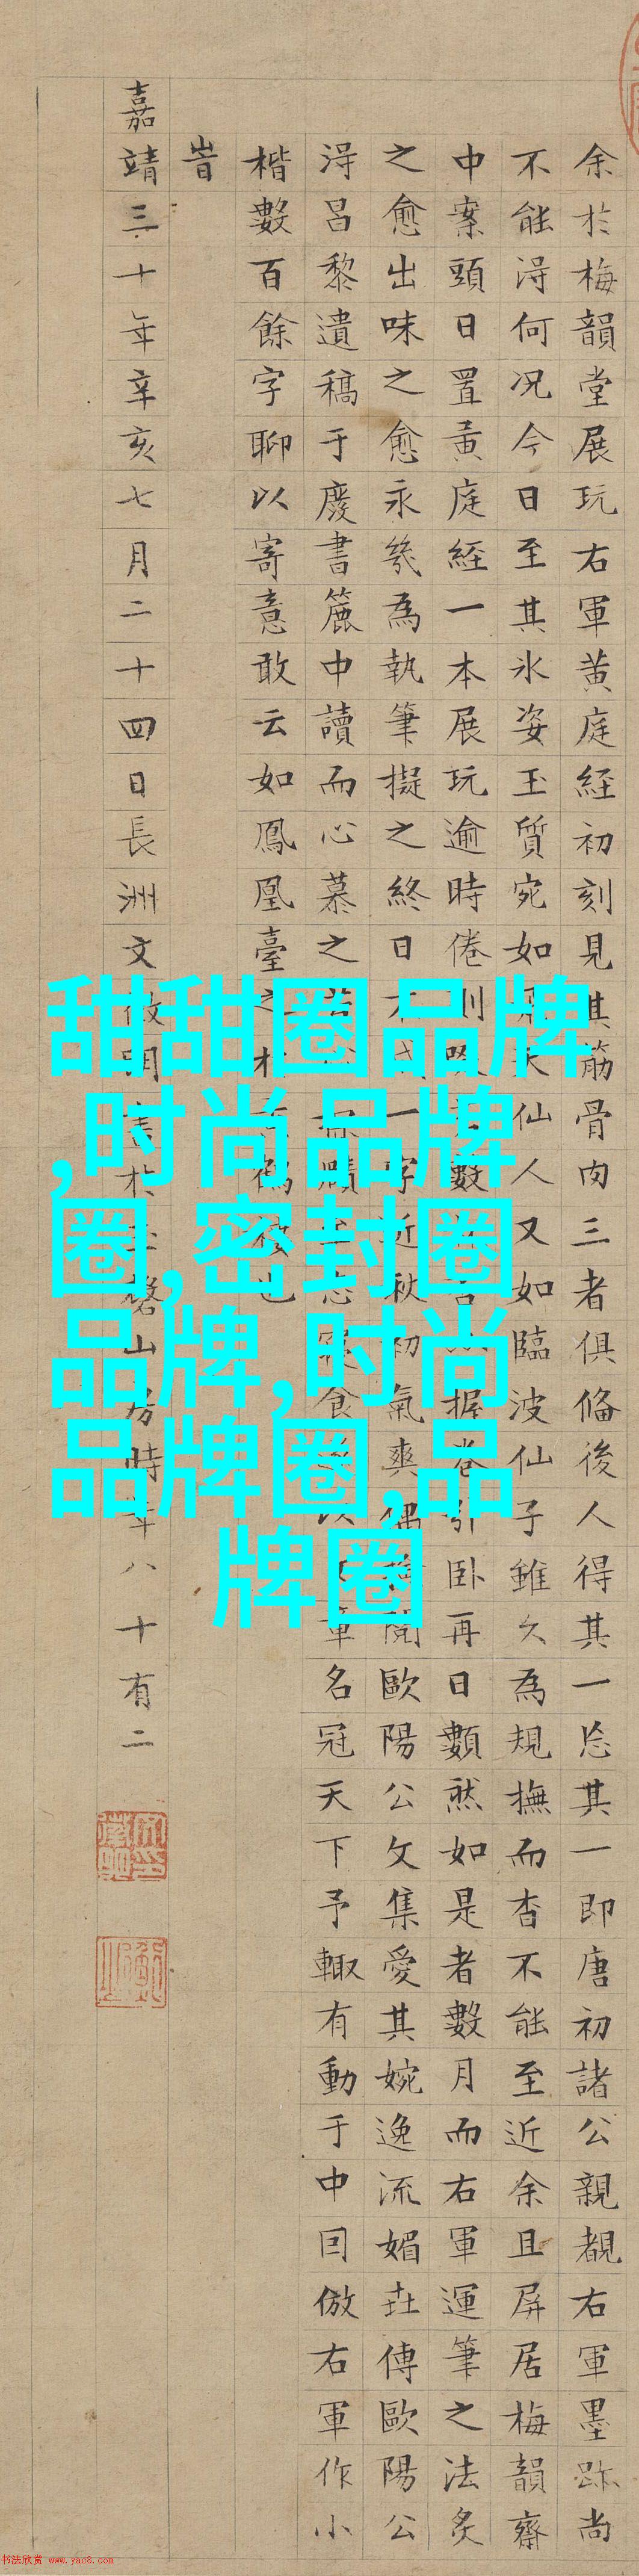 余於梅韻堂展玩右軍黄庭経初刻見其筋骨肉三者俱俻後人得其一忘其一即唐初諸公親覩右軍墨跡尚
不能淂何况今日至其氷姿玉質宛如天仙人又如臨波仙子雖久為規撫而杳不能至近余且屏居梅韻齋
中案頭日置黄庭経一本展玩逾時倦則數握卷引卧再日數然如是者數月而右軍運筆之法炙
之愈出味之愈永幾為執筆擬之終日不一字近秋初氣爽偶閱歐陽公文集愛其婉逸流媚世傳歐陽公
淂呂黎遺稿于廢書簏中讀而心慕之忘寢食以章名冠天下予輙有動于中囙倣右軍作小
楷數百餘字聊以寄意敢云如鳳凰臺之於鶴樓也
旹
嘉靖三十年辛亥七月二十四日長洲文徵明書於玉磬山房時年八十有二
甜甜圈品牌
,时尚品牌
圈,密封圈
品牌,时尚
品牌圈,品
牌圈
书法欣赏 www.yac8.com